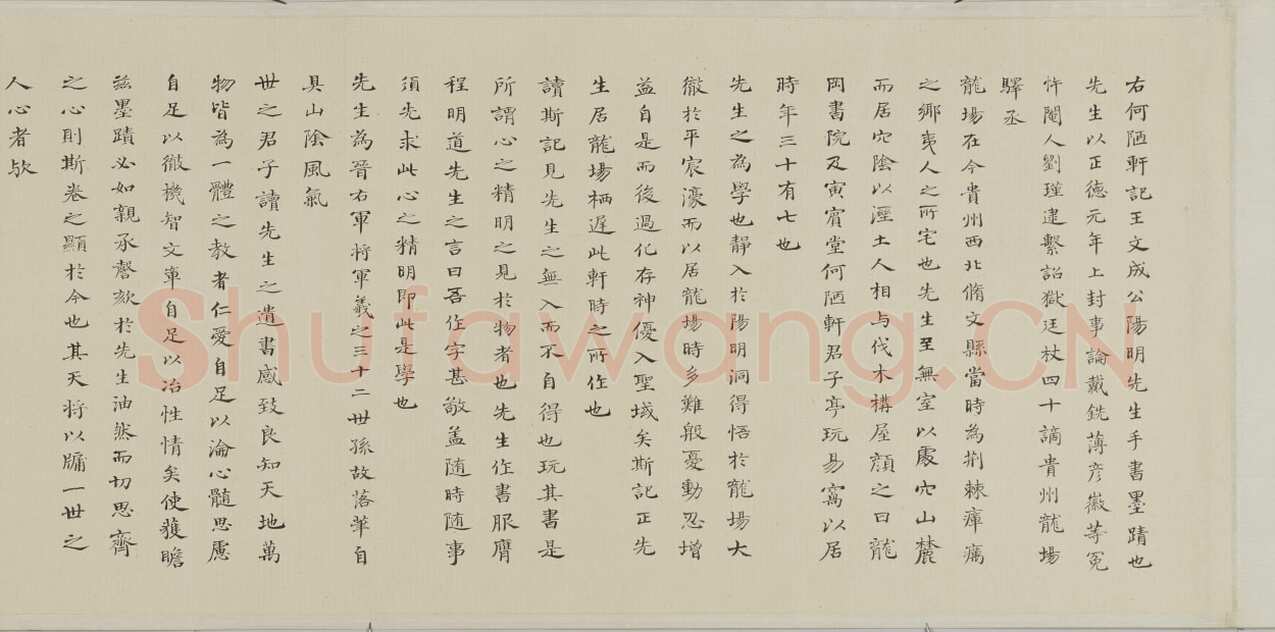 右何陋軒記王文成公陽明先生手書墨蹟也
先生以正德元年上封事論戴銑薄彥徽等冤
忤閹人劉瑾逮繫詔獄廷杖四十謫貴州龍場
驛丞
龍場在今貴州西北脩文縣當時為荆棘瘴癘
之鄉夷人之所宅也先生至無室以處穴山麓
而居穴陰以溼土人相与伐木構屋顏之曰龍
岡書院及寅賓堂何陋軒君子亭玩易窩以居
時年三十有七也
先生之為學也靜入於陽明洞得悟於龍場大
徹於平宸濠而以居龍場時多難殷憂動忍增
益自是而後過化存神優入聖域矣斯記正先
生居龍場栖遲此軒時之所作也
讀斯記見先生之無入而不自得也玩其書是
所謂心之精明之見於物者也先生作書服膺
程明道先生之言曰吾作字甚敬盖隨時隨事
須先求此心之精明即此是學也
先生為晉右軍將軍羲之三十二世孫故落華自
具山陰風氣
世之君子讀先生之遺書感致良知天地萬
物皆為一體之教者仁愛自足以淪心髓思慮
自足以徹機智文章自足以冶性情矣使獲瞻
茲墨蹟必如親承謦欬於先生油然而切思齊
之心則斯卷之顯於今也其天將以牖一世之
人心者歟
Shufawang.CN